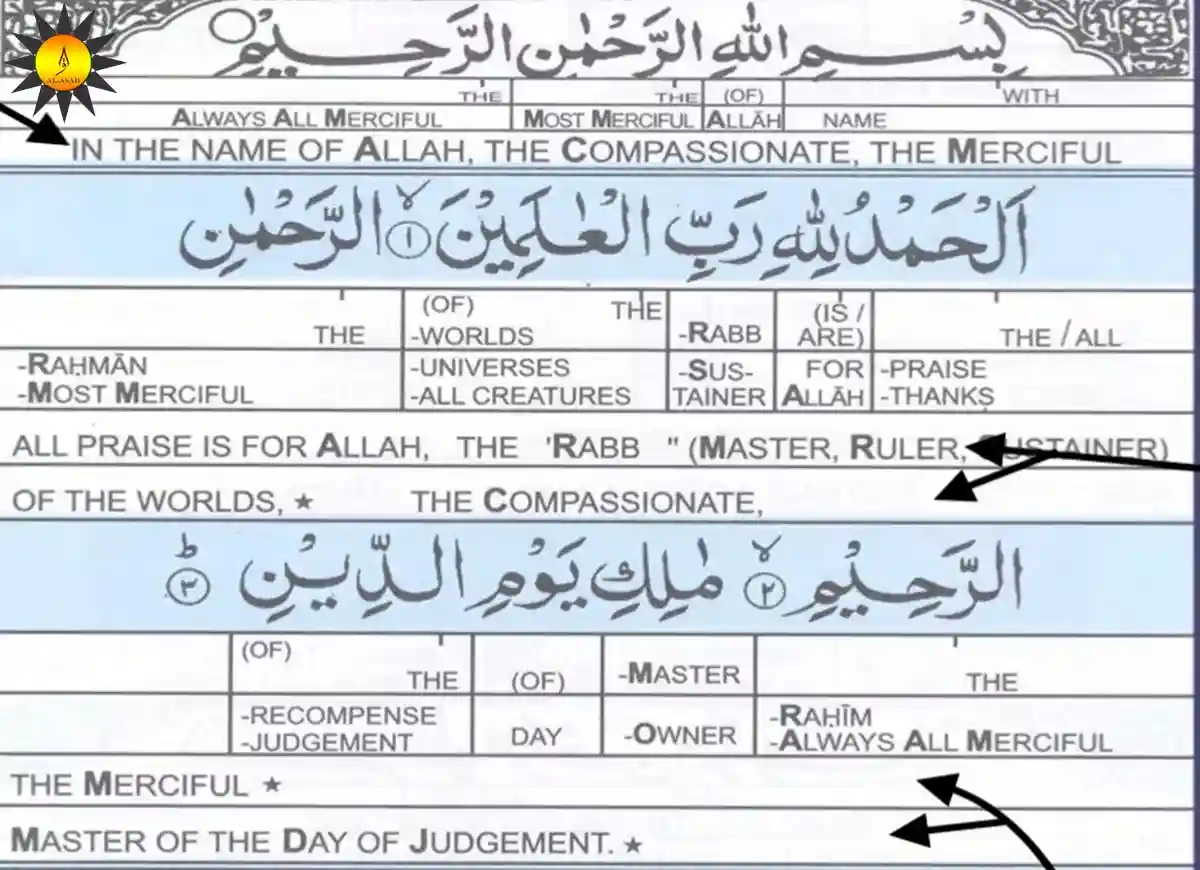 بِسْمِ اللهِ الرَّحْمٰنِ الرَّحِيْمِ
AL-ASAD
THE THE (OF) WITH
ALWAYS ALL MERCIFUL MOST MERCIFUL ALLĀH NAME
IN THE NAME OF ALLAH, THE COMPASSIONATE, THE MERCIFUL
اَلْحَمْدُ لِلّٰهِ رَبِّ الْعٰلَمِيْنَ ۙ ١ الرَّحْمٰنِ
(OF) THE (IS /
THE -WORLDS -RABB ARE) THE / ALL
-RAḤMĀN -UNIVERSES -SUS- FOR -PRAISE
-MOST MERCIFUL -ALL CREATURES TAINER ALLĀH -THANKS
ALL PRAISE IS FOR ALLAH, THE 'RABB " (MASTER, RULER, SUSTAINER)
OF THE WORLDS, ★ THE COMPASSIONATE,
الرَّحِيْمِ ۙ ٢ مٰلِكِ يَوْمِ الدِّيْنِ ؕ ٣
(OF) THE (OF) -MASTER THE
-RECOMPENSE -RAḤĪM
-JUDGEMENT DAY -OWNER -ALWAYS ALL MERCIFUL
THE MERCIFUL ★
MASTER OF THE DAY OF JUDGEMENT. ★